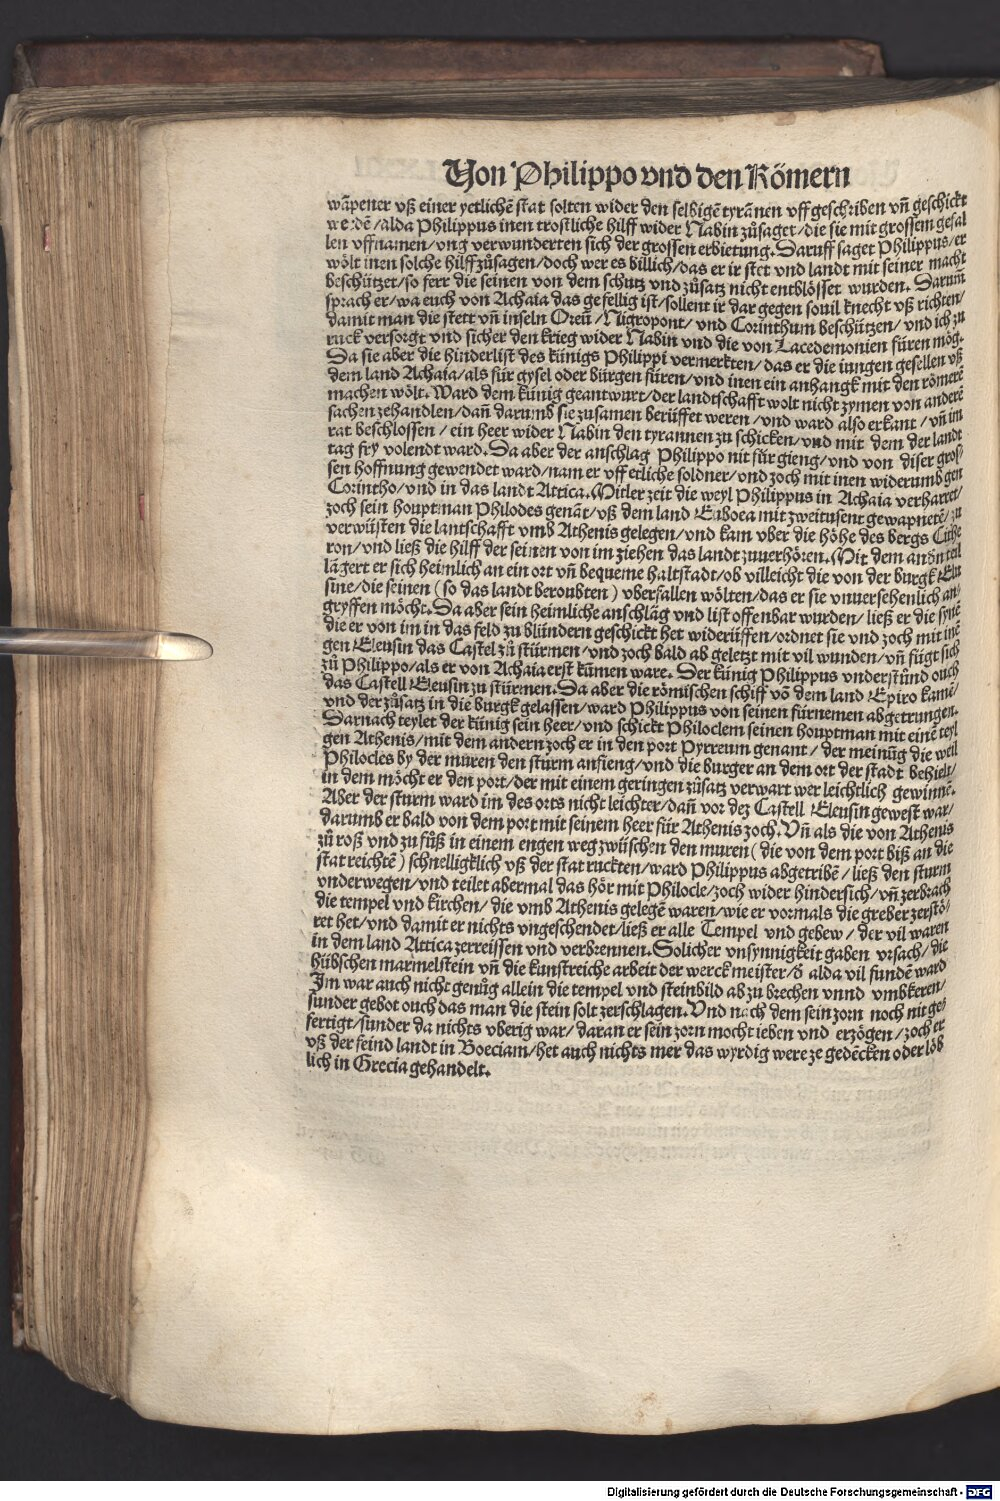 Von Philippo vnd den Römern
wāpener vß einer yetlichē stat solten wider den selbigē tyrānen vff geschriben vñ geschickt
werdē/alda Philippus inen trostliche hilff wider Nabin zůsaget/die sie mit grossem gefal
len vffnamen/vnd verwunderten sich der grossen erbietung. Daruff saget Philippus/er
wölt inen solche hilff zůsagen/doch wer es billich/das er ir stet vnd landt mit seiner macht
beschützet/so ferr die seinen von dem schutz vnd zůsatz nicht entblösset wurden. Darum̄
sprach er/wa euch von Achaia das gefellig ist/sollent ir dar gegen souil knecht vß richten/
damit man die stett vñ inseln Oreū/Nigropont/vnd Corinthum beschützen/vnd ich zu
ruck versorgt vnd sicher den krieg wider Nabin vnd die von Lacedemonien füren mög.
Da sie aber die hinderlist des künigs Philippi vermerkten/das er die iungen gesellen vß
dem land Achaia/als für gysel oder bürgen füren/vnd inen ein anhangk mit den römerē
machen wölt. Ward dem künig geantwurt/der landtschafft wolt nicht zymen von anderē
sachen zehandlen/dañ darumb sie zusamen berüffet weren/vnd ward also erkant/vñ im
rat beschlossen/ein heer wider Nabin den tyrannen zu schicken/vnd mit dem der landt
tag fry volendt ward. Da aber der anschlag Philippo nit für gieng/vnd von diser gros/
sen hoffnung gewendet ward/nam er vff etliche soldner/vnd zoch mit inen widerumb gen
Corintho/vnd in das landt Attica. Mitler zeit die weyl Philippus in Achaia verharret/
zoch sein houptman Philodes genāt/vß dem land Euboea mit zweitusent gewapnetē/zu
verwüsten die lantschafft vmb Athenis gelegen/vnd kam vber die höhe des bergs Cithe
ron/vnd ließ die hilff der seinen von im ziehen das landt zuuerhören. Mit dem andn̄ teil
lägert er sich heimlich an ein ort vñ bequeme haltstadt/ob villeicht die von der burgk Eleu
sine/die seinen (so das landt beroubten) vberfallen wölten/das er sie vnuersehenlich an/
gryffen möcht. Da aber sein heimliche anschläg vnd list offenbar wurden/ließ er die synē
die er von im in das feld zu blündern geschickt het widerüffen/ordnet sie vnd zoch mit inē
gen Eleusin das Castel zů stürmen/vnd zoch bald ab geletzt mit vil wunden/vñ fůgt sich
zů Philippo/als er von Achaia erst kūmen ware. Der künig Philippus vnderstůnd ouch
das Castell Eleusin zu stürmen. Da aber die römischen schiff vō dem land Epiro kamē/
vnd der zůsatz in die burgk gelassen/ward Philippus von seinen fürnemen abgetrungen.
Darnach teylet der künig sein heer/vnd schickt Philoclem seinen houptman mit einē teyl
gen Athenis/mit dem andern zoch er in den port Pyrreum genant/der meinūg die weil
Philocles by der muren den sturm anfieng/vnd die burger an dem ort der stadt behielt/
in dem möcht er den port/der mit einem geringen zůsatz verwart wer leichtlich gewinnē.
Aber der sturm ward im des orts nicht leichter/dañ vor dez Castell Eleusin gewest war/
darumb er bald von dem port mit seinem heer für Athenis zoch. Vñ als die von Athenis
zů roß vnd zu fůß in einem engen weg zwüschen den muren (die von dem port biß an die
stat reichtē) schnelligklich vß der stat ruckten/ward Philippus abgetribē/ließ den sturm
vnderwegen/vnd teilet abermal das hör mit Philocle/zoch wider hindersich/vñ zerbrach
die tempel vnd kirchen/die vmb Athenis gelegē waren/wie er vormals die greber zerstö/
ret het/vnd damit er nichts vngeschendet/ließ er alle Tempel vnd gebew/der vil waren
in dem land Attica zerreissen vnd verbrennen. Solicher vnsynnigkeit gaben vrsach/die
hübschen marmelstein vñ die kunstreiche arbeit der werckmeister/ð alda vil fundē ward
Im war auch nicht genůg allein die tempel vnd steinbild ab zu brechen vnnd vmbkeren/
sunder gebot ouch das man die stein solt zerschlagen. Vnd nach dem sein zorn noch nit ge/
fertigt/sunder da nichts vberig war/daran er sein zorn mocht ieben vnd erzögen/zoch er
vß der feind landt in Boeciam/het auch nichts mer das wyrdig were ze gedēcken oder löb
lich in Grecia gehandelt.
Digitalisierung gefördert durch die Deutsche Forschungsgemeinschaft - DFG